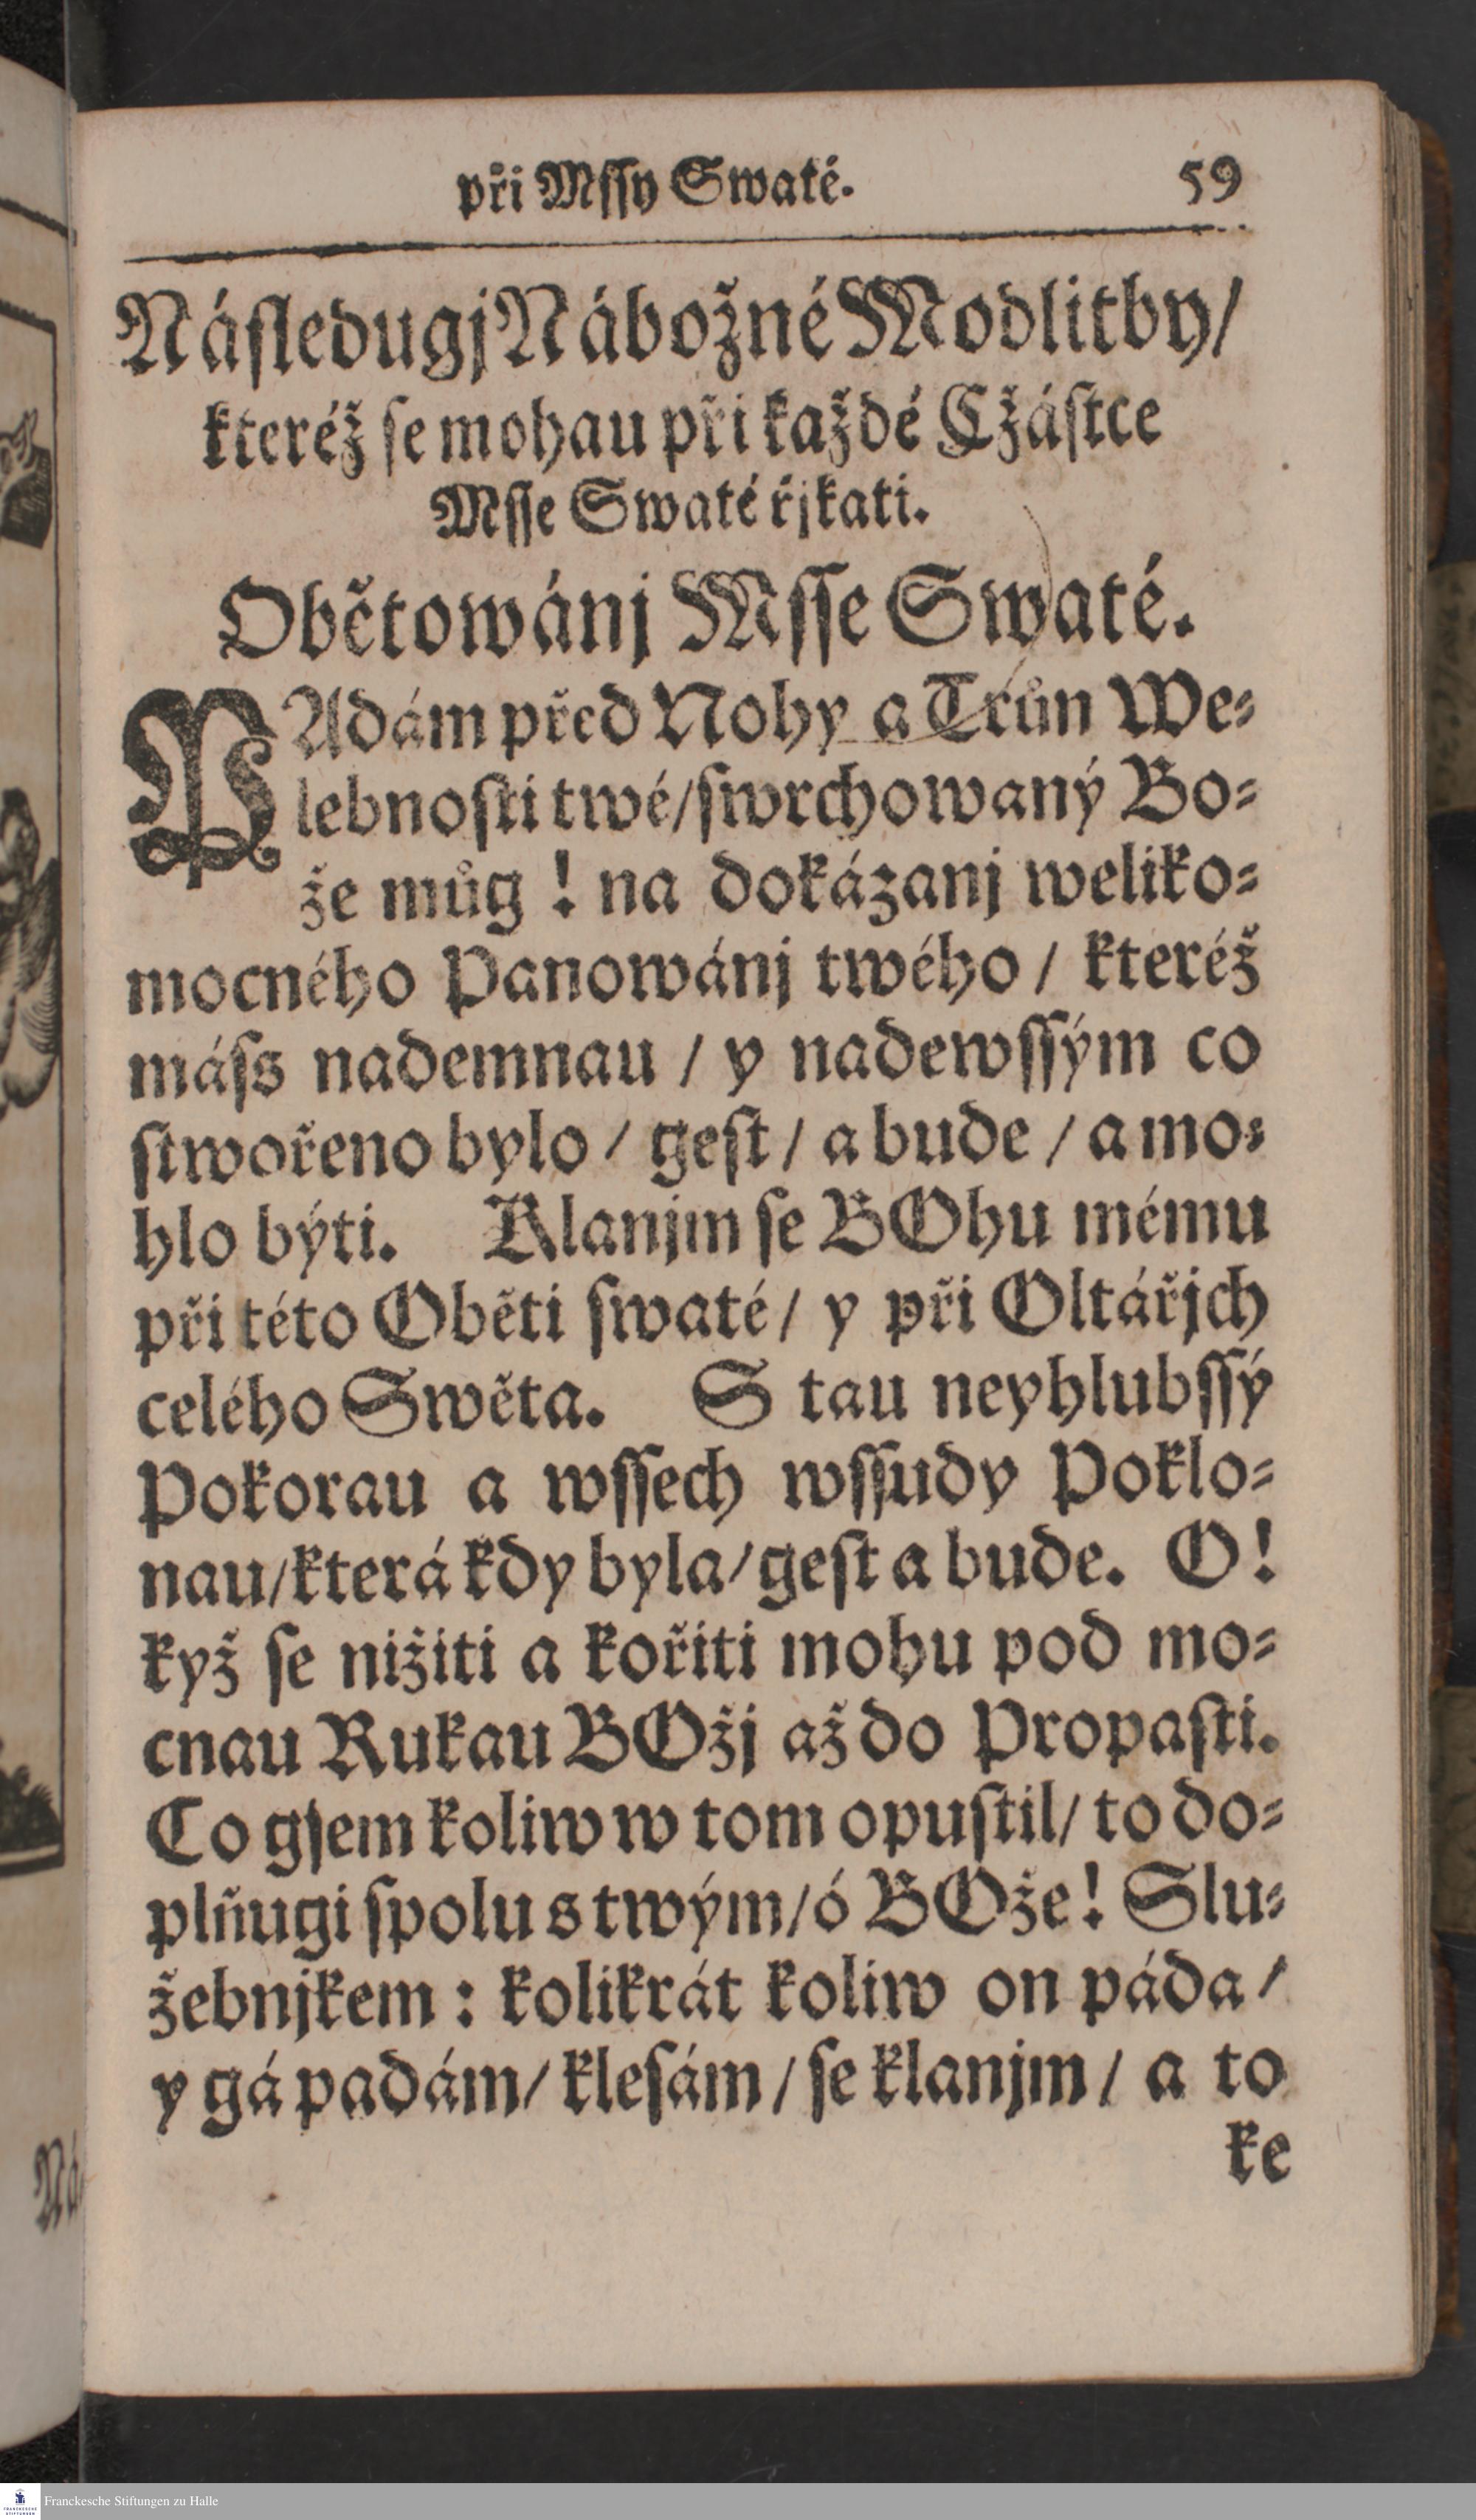 při Mſſy Swaté. 59
Náſledugj Nábožné Modlitby/
kteréž ſe mohau při každé Cžáſtce
Mſſe Swaté řjkati.
Obětowánj Mſſe Swaté.
PAdám před Nohy a Trůn We⸗
lebnoſti twé/ſwrchowaný Bo⸗
že můg ! na dokázanj weliko⸗
mocného Panowánj twého / kteréž
máſs nademnau / y nadewſſým co
ſtwořeno bylo / geſt / a bude / a mo⸗
hlo býti. Klanjm ſe BOhu mému
při této Oběti ſwaté / y při Oltářjch
celého Swěta. S tau neyhlubſſý
Pokorau a wſſech wſſudy Poklo⸗
nau/která kdy byla/geſt a bude. O!
kyž ſe nižiti a kořiti mohu pod mo⸗
cnau Rukau BOžj až do Propaſti.
Co gſem koliw w tom opuſtil/ to do⸗
plňugi ſpolu s twým/ó BOže! Slu⸗
žebnjkem : kolikrát koliw on páda /
y gá padám/ kleſám / ſe klanjm / a to
ke
Ná⸗
Franckesche Stiftungen zu Halle